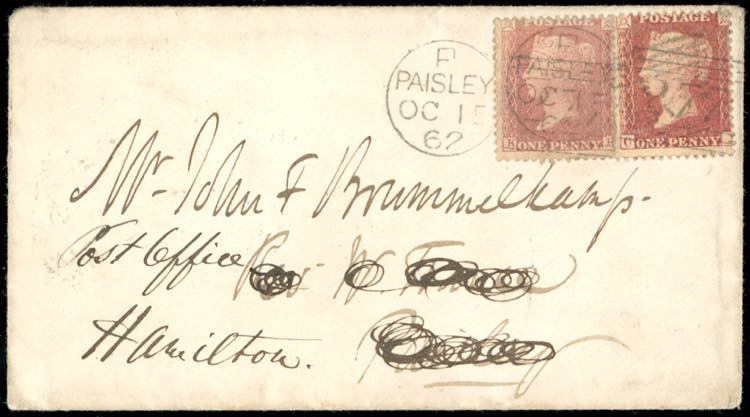 POSTAGE POSTAGE
PAISLEY
OC 15
62
PAISLEY
OC
ONE PENNY ONE PENNY
Mr. John F Brummelkamp.
Post Office
Hamilton.